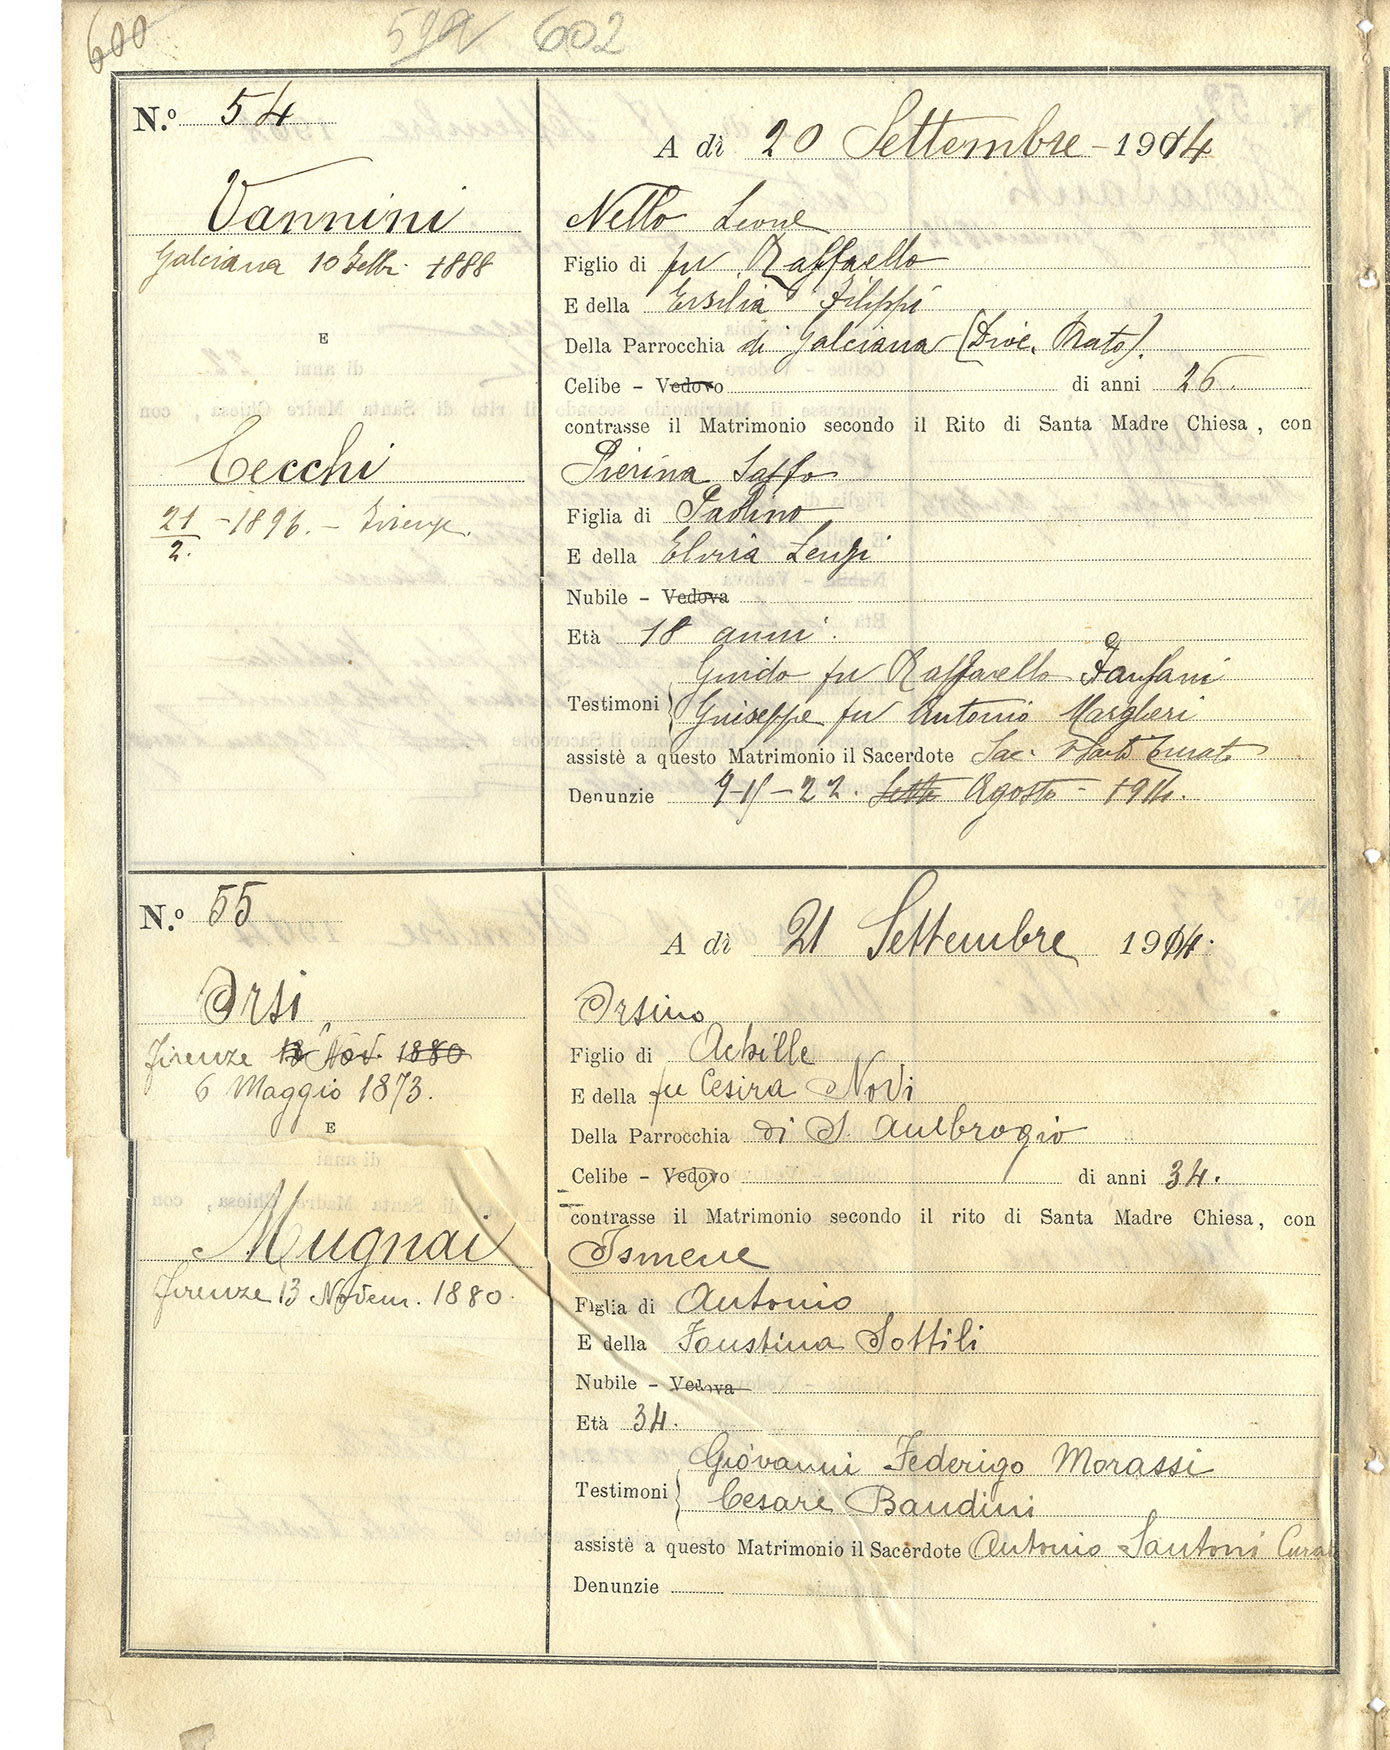 600 599 602
N.º 54
A dì 20 Settembre - 1914
Vannini
Nello Leone
Galciana 10 Febbr. 1888
Figlio di fu Raffaello
E della Ersilia Filippi
E
Della Parrocchia di Galciana (Dioc. Prato).
Celibe - Vedovo di anni 26.
contrasse il Matrimonio secondo il Rito di Santa Madre Chiesa, con
Cecchi
Pierina Saffo
21/2. - 1896. - Firenze.
Figlia di Paolino
E della Elvira Lenzi
Nubile - Vedova
Età 18 anni.
Guido fu Raffaello Fanfani
Testimoni
Guiseppe fu Antonio Margheri
assistè a questo Matrimonio il Sacerdote Sac. Curato
Denunzie 9-15-22. Sette Agosto - 1914.
N.º 55
A dì 21 Settembre 1914.
Orsi
Orsino
Firenze 13 Nov. 1880
Figlio di Achille
6 Maggio 1873.
E della fu Cesira Novi
E
Della Parrocchia di S. Ambrogio
Celibe - Vedovo di anni 34.
contrasse il Matrimonio secondo il rito di Santa Madre Chiesa, con
Mugnai
Ismene
Firenze 13 Novem. 1880.
Figlia di Antonio
E della Faustina Sottili
Nubile - Vedova
Età 34.
Giovanni Federigo Morassi
Testimoni
Cesare Bandini
assistè a questo Matrimonio il Sacerdote Antonio Santoni Curato
Denunzie